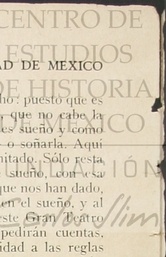 CENTRO DE
ESTUDIOS
AD DE MEXICO
DE HISTORIA
ho: puesto que es
que no cabe la
es sueño y como
DE MEXICO
o soñarla. Aquí
mitado. Sólo resta
FUNDACIÓN
sueño, con esa
que nos han dado,
en el sueño, y al
este Gran Teatro
Carlos Slim
pedirán cuentas,
idad a las reglas